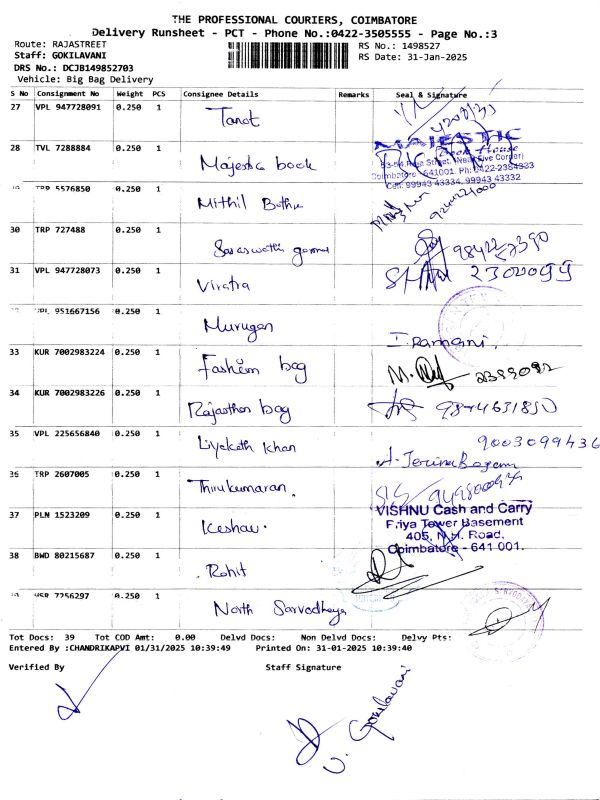 THE PROFESSIONAL COURIERS, COIMBATORE
Delivery Runsheet - PCT - Phone No.:0422-3505555 - Page No.:3
Route: RAJASTREET
RS No.: 1498527
Staff: GOKILAVANI
RS Date: 31-Jan-2025
DRS No.: DCJB149852703
Vehicle: Big Bag Delivery
S No Consignment No Weight PCS Consignee Details Remarks Seal & Signature
27 VPL 947728091 0.250 1 Tarot
28 TVL 7288884 0.250 1 Majestic book
MAJESTIC
Book House
Coimbatore - 641001. Ph: 0422-2384333
Cell: 99943 43334, 99943 43332
TRP 5576850 0.250 1 Mithil
30 TRP 727488 0.250 1 Saraswathi
31 VPL 947728073 0.250 1 Viratra
2300099
951667156 0.250 1 Murugan
I. Ramani.
33 KUR 7002983224 0.250 1 Fashion bag
34 KUR 7002983226 0.250 1 Rajasthan bag
9844631850
35 VPL 225656840 0.250 1 Liyakath Khan
9003099436
36 TRP 2607005 0.250 1 Thirukumaran.
37 PLN 1523209 0.250 1 Keshav.
VISHNU Cash and Carry
Priya Tower Basement
405, N.H. Road,
Coimbatore - 641 001.
38 BWD 80215687 0.250 1 Rohit
7256297 0.250 1 North Sarvodhaya
Tot Docs: 39 Tot COD Amt: 0.00 Delvd Docs: Non Delvd Docs: Delvy Pts:
Entered By :CHANDRIKAPVI 01/31/2025 10:39:49 Printed On: 31-01-2025 10:39:40
Verified By
Staff Signature
V. Gokilavani